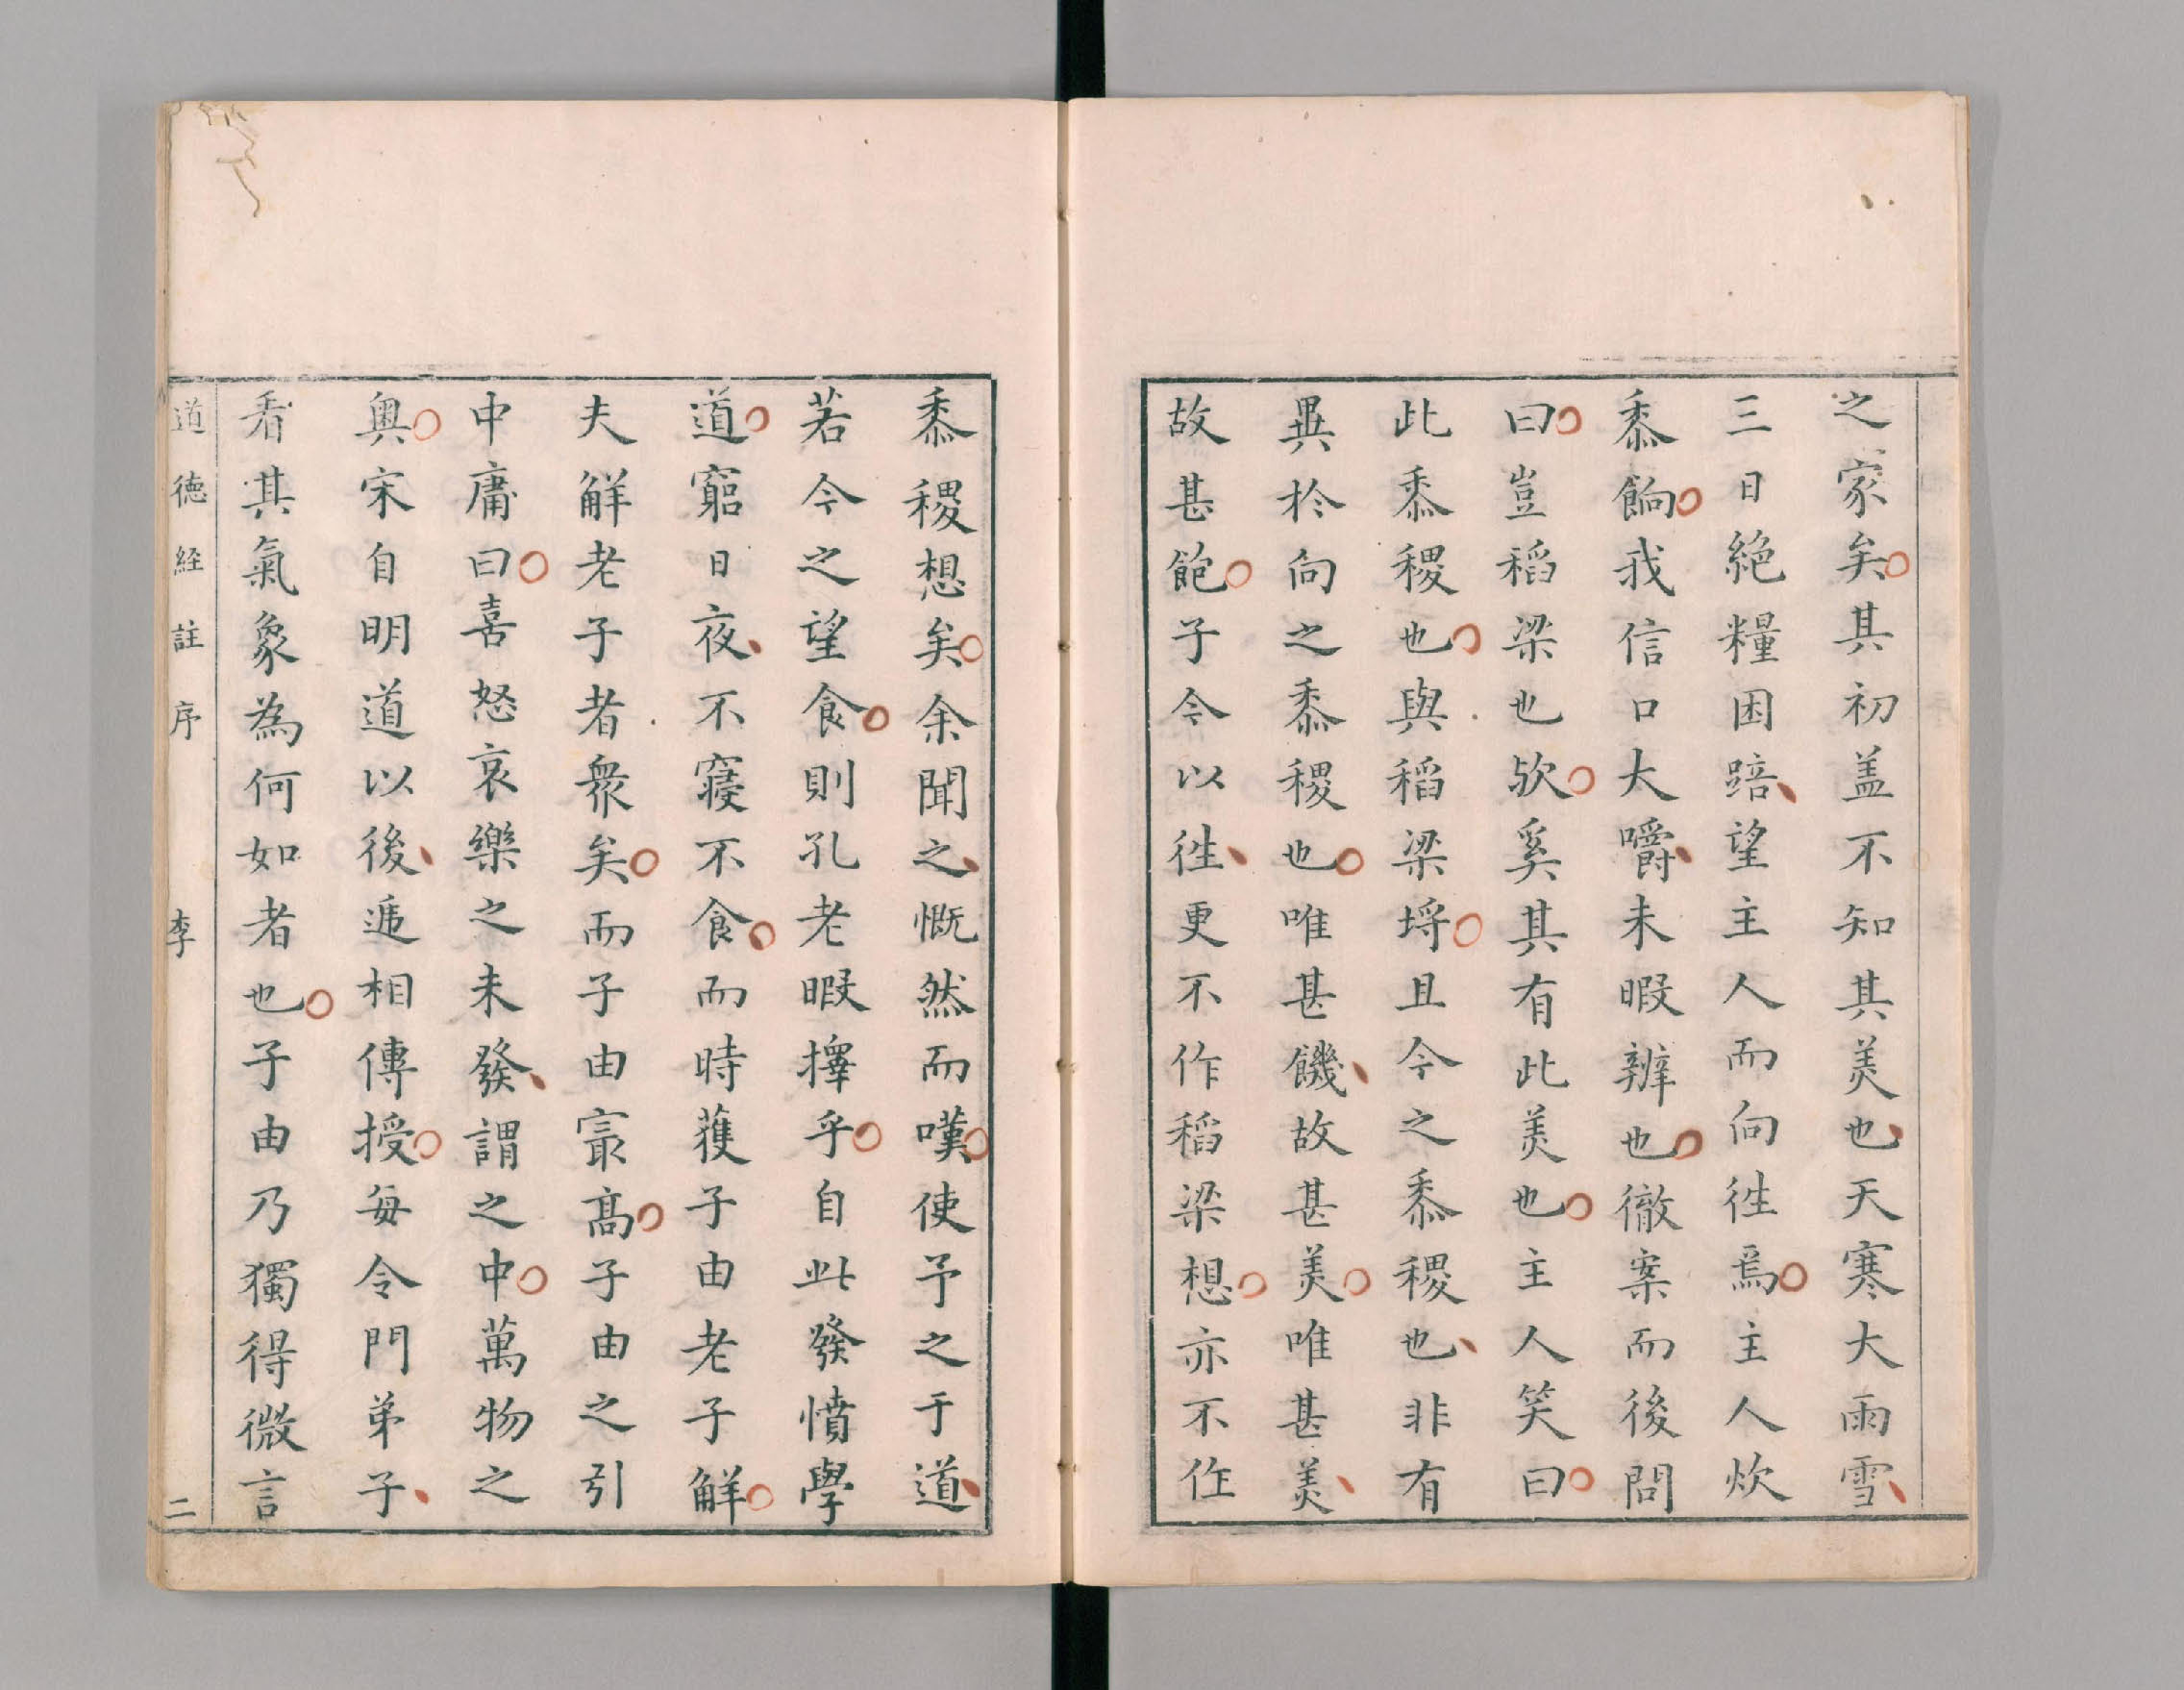 之家矣其初盖不知其美也天寒大雨雪
三日絶糧困踣望主人而向徃焉主人炊
黍餉我信口大嚼未暇辨也徹案而後問
曰豈稻梁也欤奚其有此美也主人笑曰
此黍稷也與稻梁埒且今之黍稷也非有
異於向之黍稷也唯甚饑故甚美唯甚美
故甚飽子今以徃更不作稻梁想亦不作
黍稷想矣余聞之慨然而嘆使予之于道
若今之望食則孔老暇擇乎自此發憤學
道窮日夜不寢不食而時獲子由老子觧
夫觧老子者衆矣而子由㝡髙子由之引
中庸曰喜怒哀樂之未發謂之中萬物之
奥宋自明道以後逓相傳授每令門弟子
看其氣象為何如者也子由乃獨得微言
道德経註序 李 二